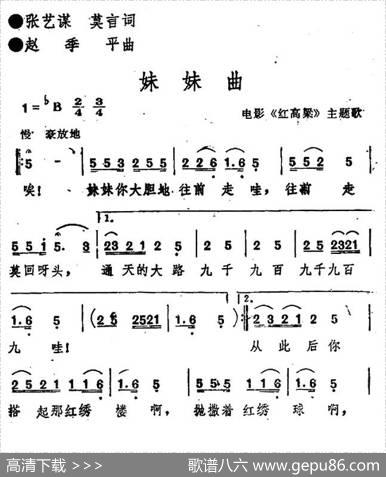 ●张艺谋 莫言词
●赵季平曲
妹妹曲
1=♭B 2/4 3/4
电影《红高粱》主题歌
慢 豪放地
5 - | 5 5 3 5 5 5 | 2 2 6 1.6 5 | 5 3 5 2 1 6 5
唉! 妹妹你大胆地 往前 走哇, 往前 走
1.
5 5 1 5. 3 | 23 2 1 2 5 | 2 5 2 5 | 2 5 2321
莫回呀头, 通天的大路 九千九百 九千九百
2.
1.6 5 | (2 5 2521 | 1.6 5) :| 2321 2 5
九哇! 从此后你
2521 116 | 1.6 5 | 5 5 2 5 116 | 1.6 5
搭起那红绣楼啊, 抛撒着红绣球啊,
高清下载 >>>
歌谱八六 www.gepu86.com